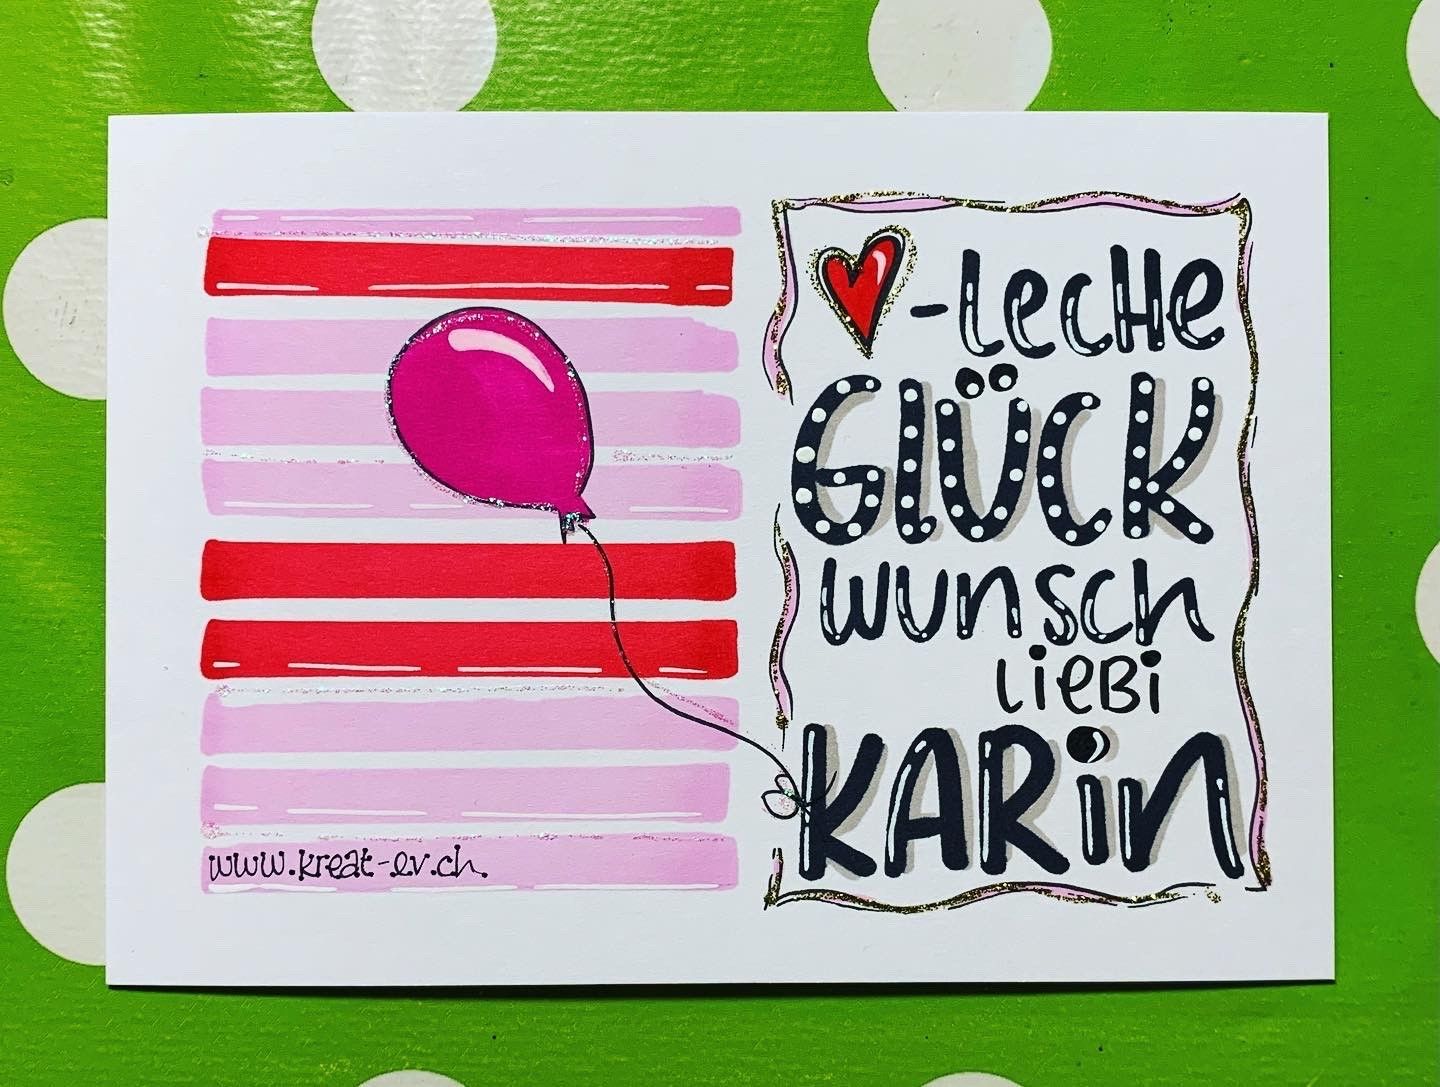 -LecHe
GLÜCK
wunsch
LieBi
KARin
www.kreat-ev.ch